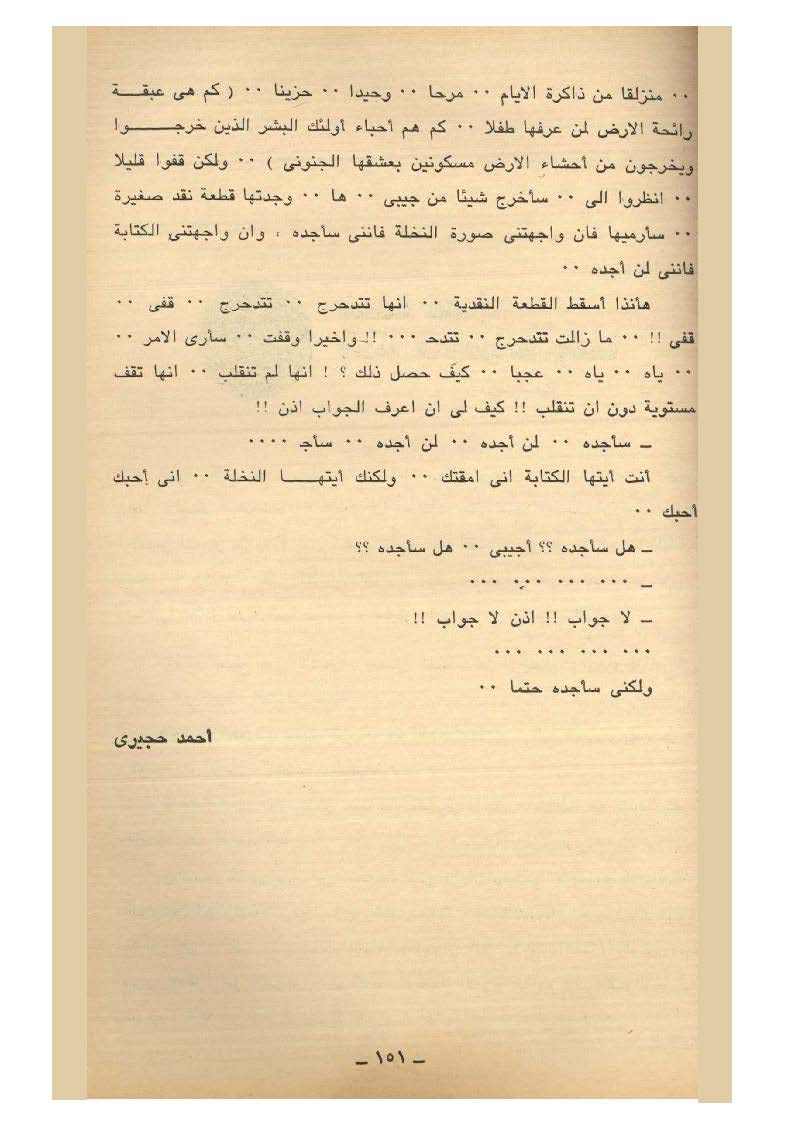 ٠٠ منزلقا من ذاكرة الايام ٠٠ مرحا ٠٠ وحيدا ٠٠ حزينا ٠٠ ( كم هى عبقـــة
رائحة الارض لمن عرفها طفلا ٠٠ كم هم أحباء أولئك البشر الذين خرجـــــوا
ويخرجون من أحشاء الارض مسكونين بعشقها الجنونى ) ٠٠ ولكن قفوا قليلا
٠٠ انظروا الى ٠٠ سأخرج شيئا من جيبى ٠٠ ها ٠٠ وجدتها قطعة نقد صغيرة
٠٠ سأرميها فان واجهتنى صورة النخلة فاننى سأجده ، وان واجهتنى الكتابة
فاننى لن أجده ٠٠
هأنذا أسقط القطعة النقدية ٠٠ انها تتدحرج ٠٠ تتدحرج ٠٠ قفى ٠٠
قفى !! ٠٠ ما زالت تتدحرج ٠٠ تتدحـ ٠٠٠ !! واخيرا وقفت ٠٠ سأرى الامر ٠٠
٠٠ ياه ٠٠ ياه ٠٠ عجبا ٠٠ كيف حصل ذلك ؟ ! انها لم تنقلب ٠٠ انها تقف
مستوية دون ان تنقلب !! كيف لى ان اعرف الجواب اذن !!
ـ سأجده ٠٠ لن أجده ٠٠ لن أجده ٠٠ سأجـ ٠٠٠٠
أنت أيتها الكتابة انى امقتك ٠٠ ولكنك أيتهـــا النخلة ٠٠ انى أحبك
أحبك ٠٠
ـ هل سأجده ؟؟ أجيبى ٠٠ هل سأجده ؟؟
ـ ٠٠٠ ٠٠٠ ٠٠٠ ٠٠٠
ـ لا جواب !! اذن لا جواب !!
٠٠٠ ٠٠٠ ٠٠٠ ٠٠٠
ولكنى سأجده حتما ٠٠
أحمد حجيرى
ـ ١٥١ ـ